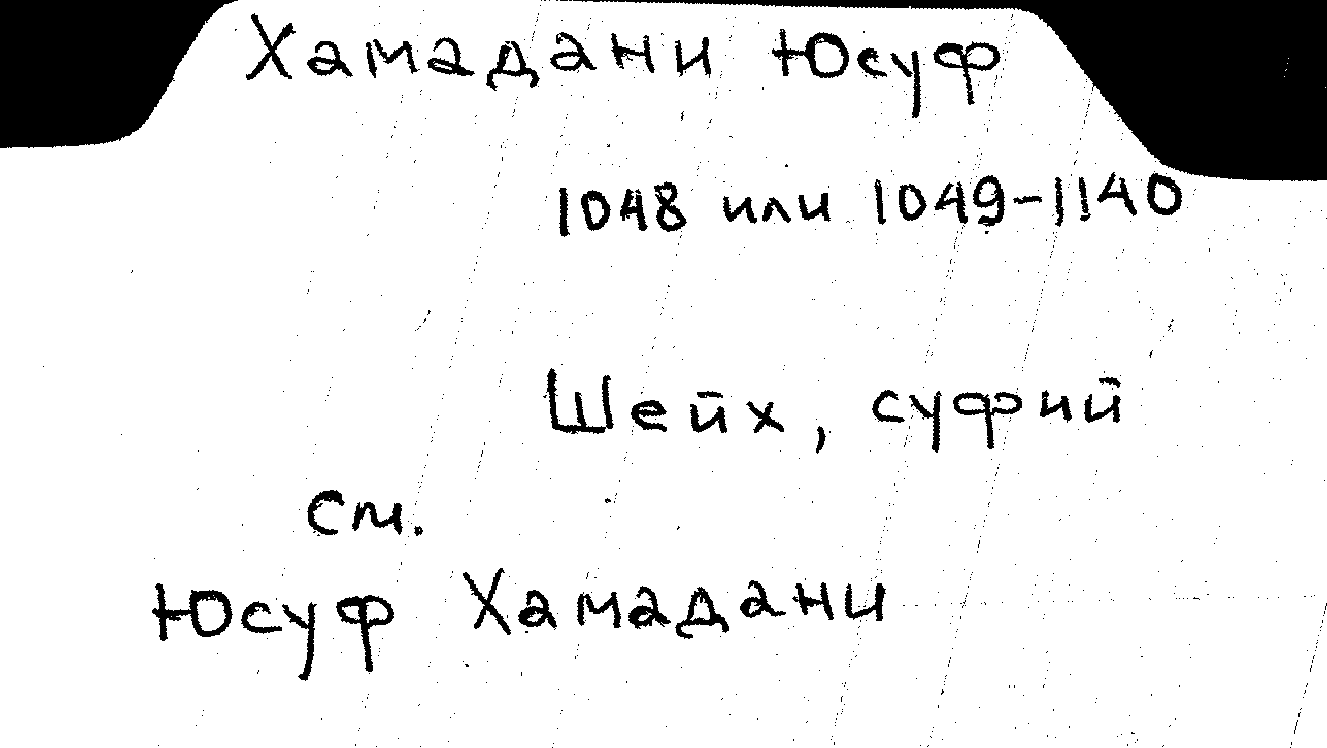 Хамадани Юсуф
1048 или 1049-1140
Шейх, суфий
см.
Юсуф Хамадани